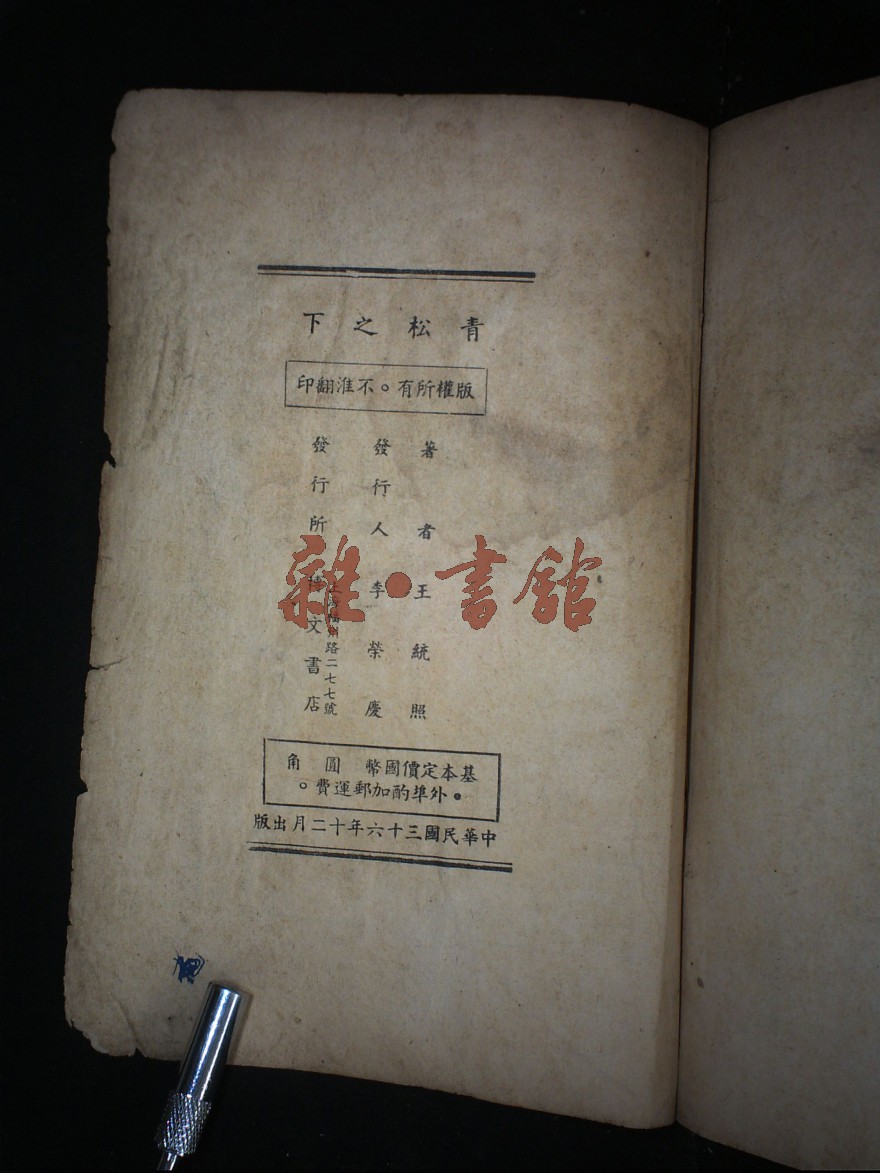 青松之下
版權所有。不準翻印
著者 王統照
發行人 李榮慶
上海福州路二七七號
發行所 博文書店
基本定價國幣 圓 角
。外埠酌加郵運費。
中華民國三十六年十二月出版
雜·書館